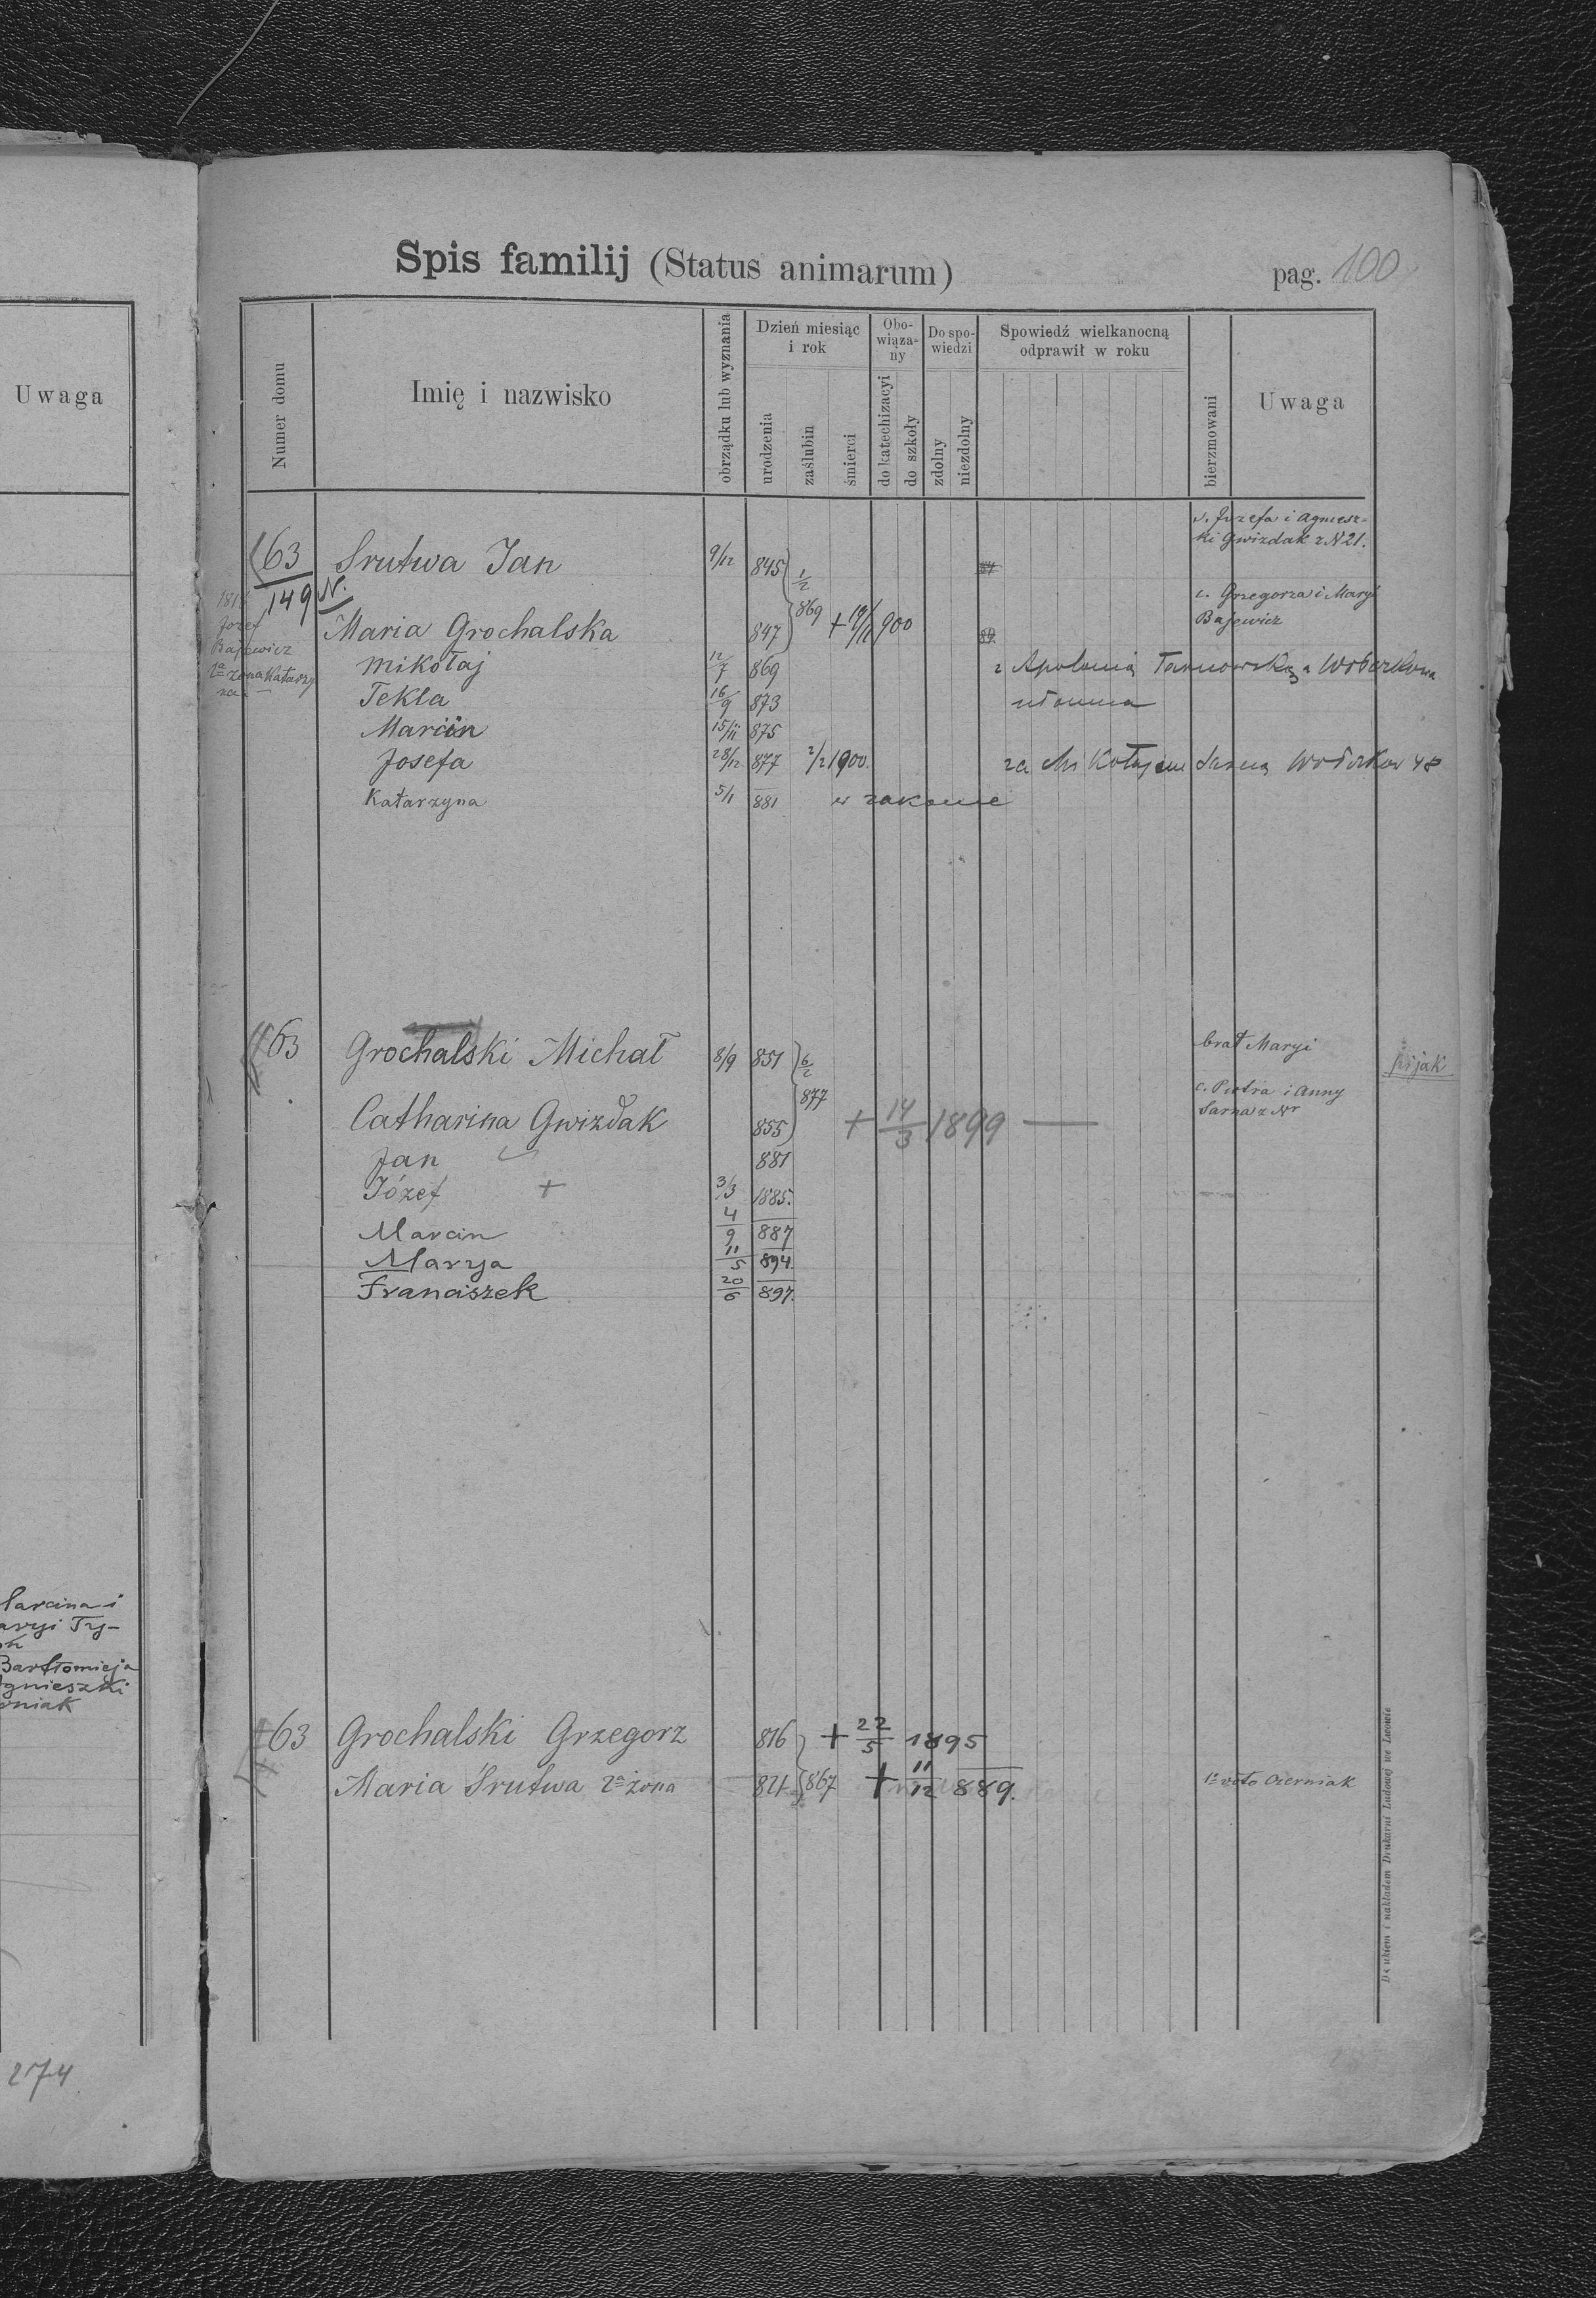 Uwaga
larcina i
aryi Try-
Bartłomieja
Agnieszki
orniak
274
Spis familij (Status animarum)
pag. 100
Numer domu
Imię i nazwisko
obrządku lub wyznania
Dzień miesiąc i rok
urodzenia
zaślubin
śmierci
Obo-wiąza-ny
do katechizacyi
do szkoły
Do spo-wiedzi
zdolny
niezdolny
Spowiedź wielkanocną odprawił w roku
bierzmowani
Uwaga
63 Srutwa Jan 9/12 845 1/2 869 s. Jozefa i Agniesz-
ki Gwizdak z N 21.
149 N.
Jozef
Bajewicz
2a żona Katarzy
na
Maria Grochalska 847 + 900 c. Grzegorza i Maryi
Bajewicz
Mikołaj 12/7 869 z Apolonią Tarnowską z
Tekla 16/9 873 ułomna
Marcin 15/11 875
Josefa 28/12 877 2/2 1900. za Mikołajem Sarną 48
Katarzyna 5/1 881 w zakonie
63 Grochalski Michał 8/9 851 6/2 877 brat Maryi pijak
Catharina Gwizdak 855 + 14/3 1899 — c. Piotra i Anny
Sarna z Nr
Jan 881
Józef + 3/3 1885.
Marcin 4/9 887
Marya 11/5 894.
Franciszek 20/6 897.
63 Grochalski Grzegorz 816 + 22/5 1895
Maria Srutwa 2a żona 821 867 + 11/12 889. 1o voto Czerniak
Drukiem i nakładem Drukarni Ludowej we Lwowie